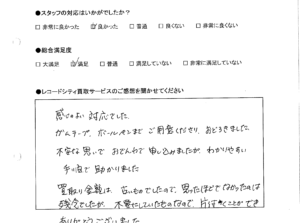 ●スタッフの対応はいかがでしたか？
□ 非常に良かった ☑ 良かった □ 普通 □ 良くない □ 非常に良くない
●総合満足度
□ 大満足 ☑ 満足 □ 普通 □ 満足していない □ 非常に満足していない
●レコードシティ買取サービスのご感想を聞かせてください
感じのよい対応でした。
ガムテープ、ボールペンまでご用意くださり、おどろきました。
不安な思いでおでんわで申し込みましたが、わかりやすい
手順で助かりました
買取り金額は、古いものでしたので、思ったほどでなかったのは
残念でしたが、不要にしていたものなので、片付くことができ
ありがとうございました